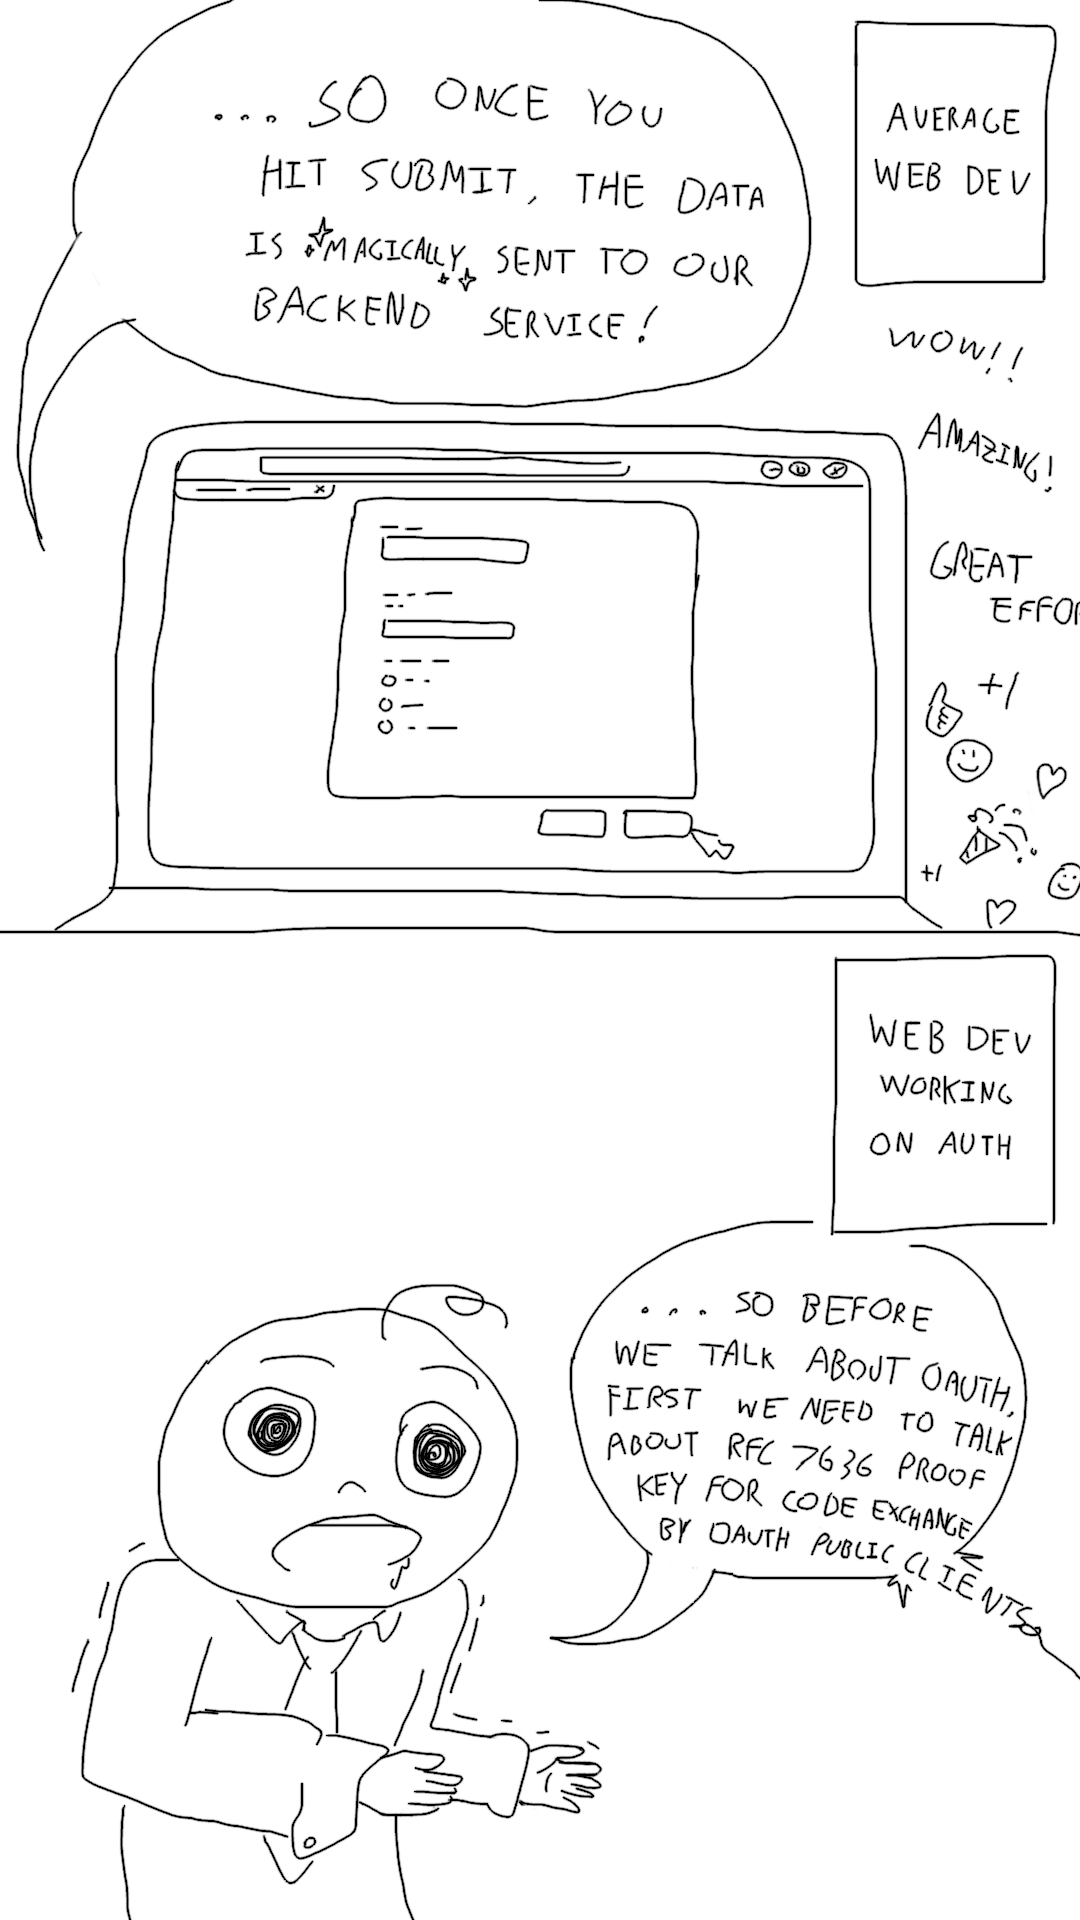 ... SO ONCE YOU
HIT SUBMIT, THE DATA
IS MAGICALLY SENT TO OUR
BACKEND SERVICE!
AVERAGE
WEB DEV
WOW!!
AMAZING!
GREAT
EFFOR
+1
+1
WEB DEV
WORKING
ON AUTH
... SO BEFORE
WE TALK ABOUT OAUTH,
FIRST WE NEED TO TALK
ABOUT RFC 7636 PROOF
KEY FOR CODE EXCHANGE
BY OAUTH PUBLIC CLIENTS